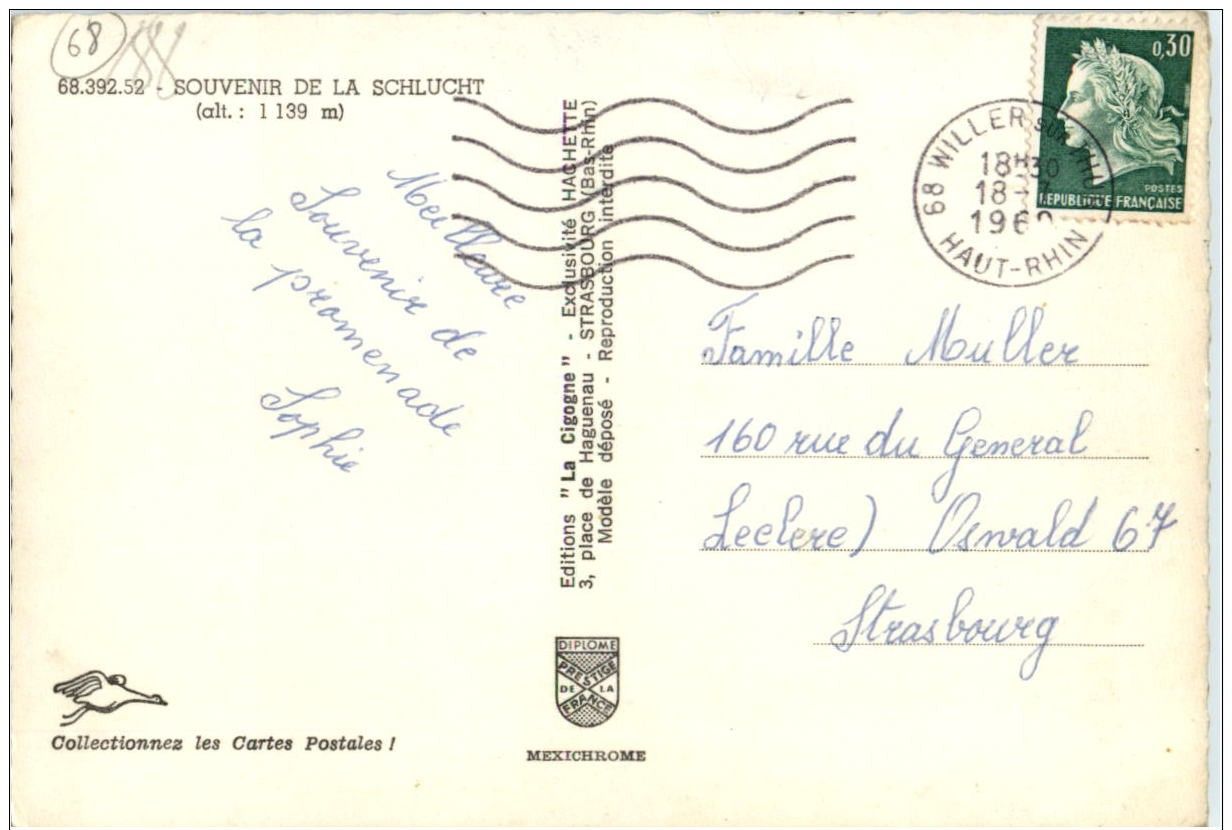 68
68.392.52 - SOUVENIR DE LA SCHLUCHT
(alt. : 1 139 m)
Meilleure
Souvenir de
la promenade
Sophie
Editions "La Cigogne" - Exclusivité HACHETTE
3, place de Haguenau - STRASBOURG (Bas-Rhin)
Modèle déposé - Reproduction interdite
0,30
POSTES
REPUBLIQUE FRANÇAISE
68 WILLER SUR THU
18H30
18 -
196
HAUT-RHIN
Famille Muller
160 rue du General
Leclere) Oswald 67
Strasbourg
DIPLOME
PRESTIGE
DE LA
FRANCE
MEXICHROME
Collectionnez les Cartes Postales !